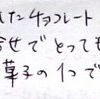 したチョコレート
合せで とっても
菓子の1つで